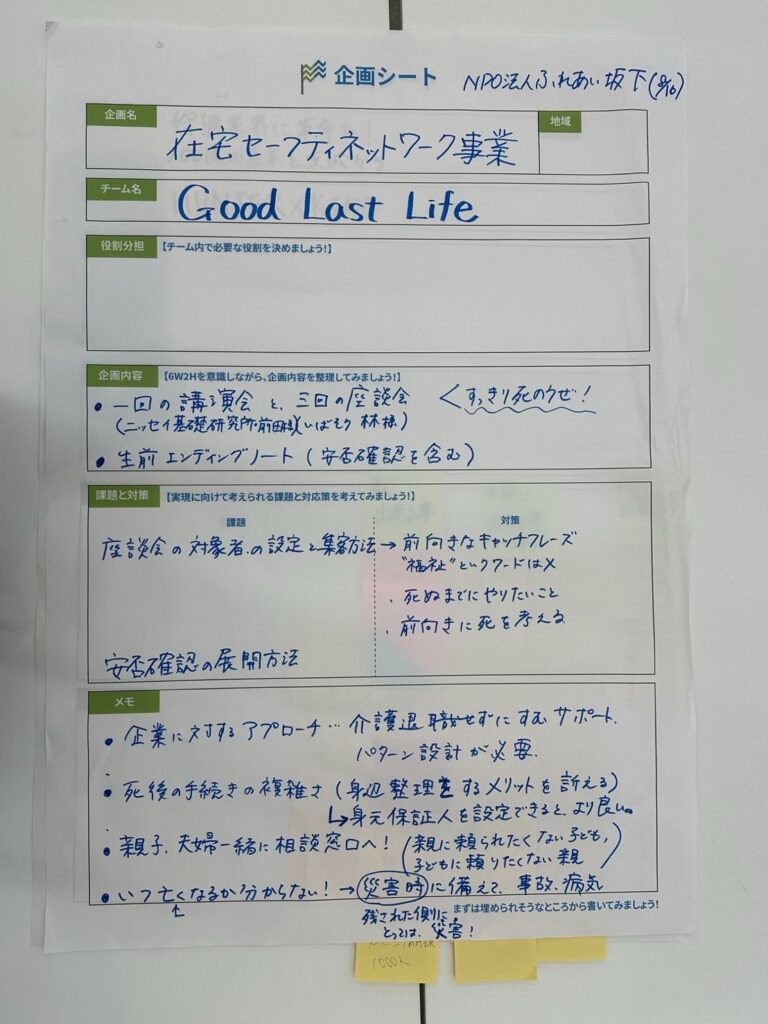 企画シート
NPO法人ふれあい坂下(8/10)
企画名
在宅セーフティネットワーク事業
地域
チーム名
Good Last Life
役割分担
【チーム内で必要な役割を決めましょう!】
企画内容
【6W2Hを意識しながら、企画内容を整理してみましょう!】
• 一回の講演会と、三回の座談会
<すっきり死のうぜ!
(ニッセイ基礎研究所・前田様、いばそう 林様)
• 生前エンディングノート(安否確認を含む)
課題と対策
【実現に向けて考えられる課題と対応策を考えてみましょう!】
課題
対策
座談会の対象者の設定と集客方法→前向きなキャッチフレーズ
"福祉"というワードは×
、死ぬまでにやりたいこと
、前向きに死を考える
安否確認の展開方法
メモ
• 企業に対するアプローチ…介護退職せずにすむサポート、
パターン設計が必要。
• 死後の手続きの複雑さ(身辺整理をするメリットを訴える)
↳身元保証人を設定できると、より良い。
• 親子、夫婦一緒に相談窓口へ!
(親に頼られたくない子ども、
子どもに頼りたくない親)
• いつ亡くなるか分からない!→災害時に備えて、事故、病気
↑
まずは埋められそうなところから書いてみましょう!
残された側に
とっては、災害!